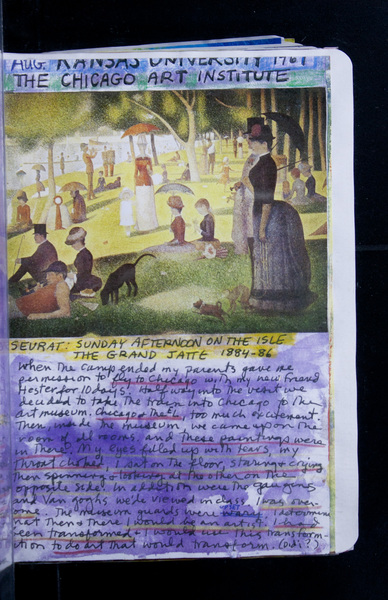 AUG. KANSAS UNIVERSITY 1961
THE CHICAGO ART INSTITUTE
SEURAT: SUNDAY AFTERNOON ON THE ISLE
THE GRAND JATTE 1884-86
When the camp ended my parents gave me
permission to fly to Chicago with my new friend
Hester for 10 days. Half way into the visit we
decided to take the train into Chicago to the
art museum. Chicago & the EL, too much excitement.
Then inside the museum, we came upon the
room of all rooms, and these paintings were
in there. My eyes filled up with tears, my
throat choked, I sat on the floor, staring & crying
then spinning & looking at the other on the
opposite side. In addition were the Gauguins
and Van Goghs we'd viewed in class. I was over-
come. The museum guards were wary. I determined
that Then & There I would be an artist. I had
been transformed & I would use this transform-
ation to do art that would transform. (Did I?)